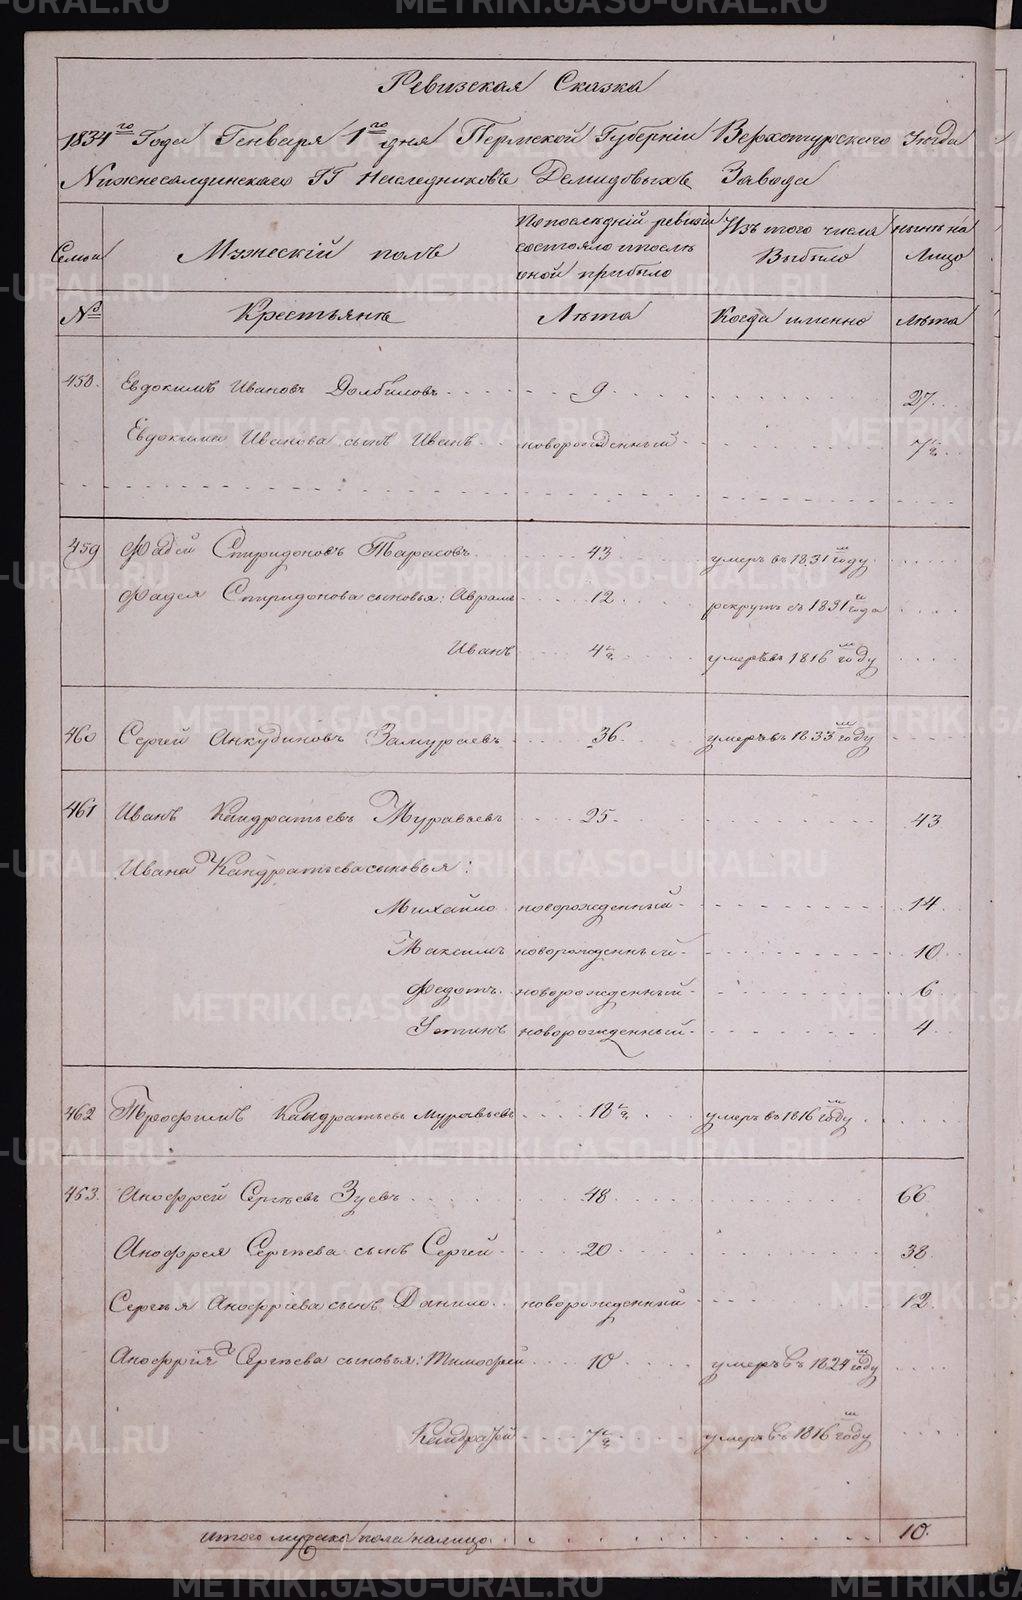 Ревизская Сказка
1834го Года Генваря 1го дня Пермской Губернiи Верхотурского Уѣзда
Нижнесалдинскаго ГГ Наследниковъ Демидовыхъ Завода
Семьи
Мужескiй полъ
По последнiй ревизiи состояло ипослѣ оной прибыло
Изъ того числа Выбыло
нынѣ на Лицо
№
Крестьяне
Лѣта
Когда именно
Лѣта
458. Евдокимъ Ивановъ Долбиловъ 9 27
Евдокима Иванова сынъ Иванъ новорожденный
459 Фадей Спиридоновъ Тарасовъ 43 умеръ въ 1831м году
Фадея Спиридонова сыновья: Аврамъ 12 рекрутъ съ 1831 года
Иванъ умеръ въ 1816м году
460 Сергей Анкудиновъ Замураевъ 36 умеръ въ 1833м году
461 Иванъ Кандратьевъ Муравьевъ 25 43
Ивана Кандратьева сыновья:
Михайло новорожденный 14
Максимъ новорожденный 10
Федотъ новорожденный 6
Устинъ новорожденный 4
462 Трофимъ Кандратьевъ Муравьевъ умеръ въ 1816м году
463. Анофрей Сергѣевъ Зуевъ 48 66
Анофрея Сергѣева сынъ Сергей 20 38
Сергея Анофрiева сынъ Данило новорожденный 12
Анофрiя Сергѣева сыновья: Тимофей 10 умеръ въ 1824м году
Кандратей умеръ въ 1816м году
итого мужска пола налицо 10.
METRIKI.GASO-URAL.RU